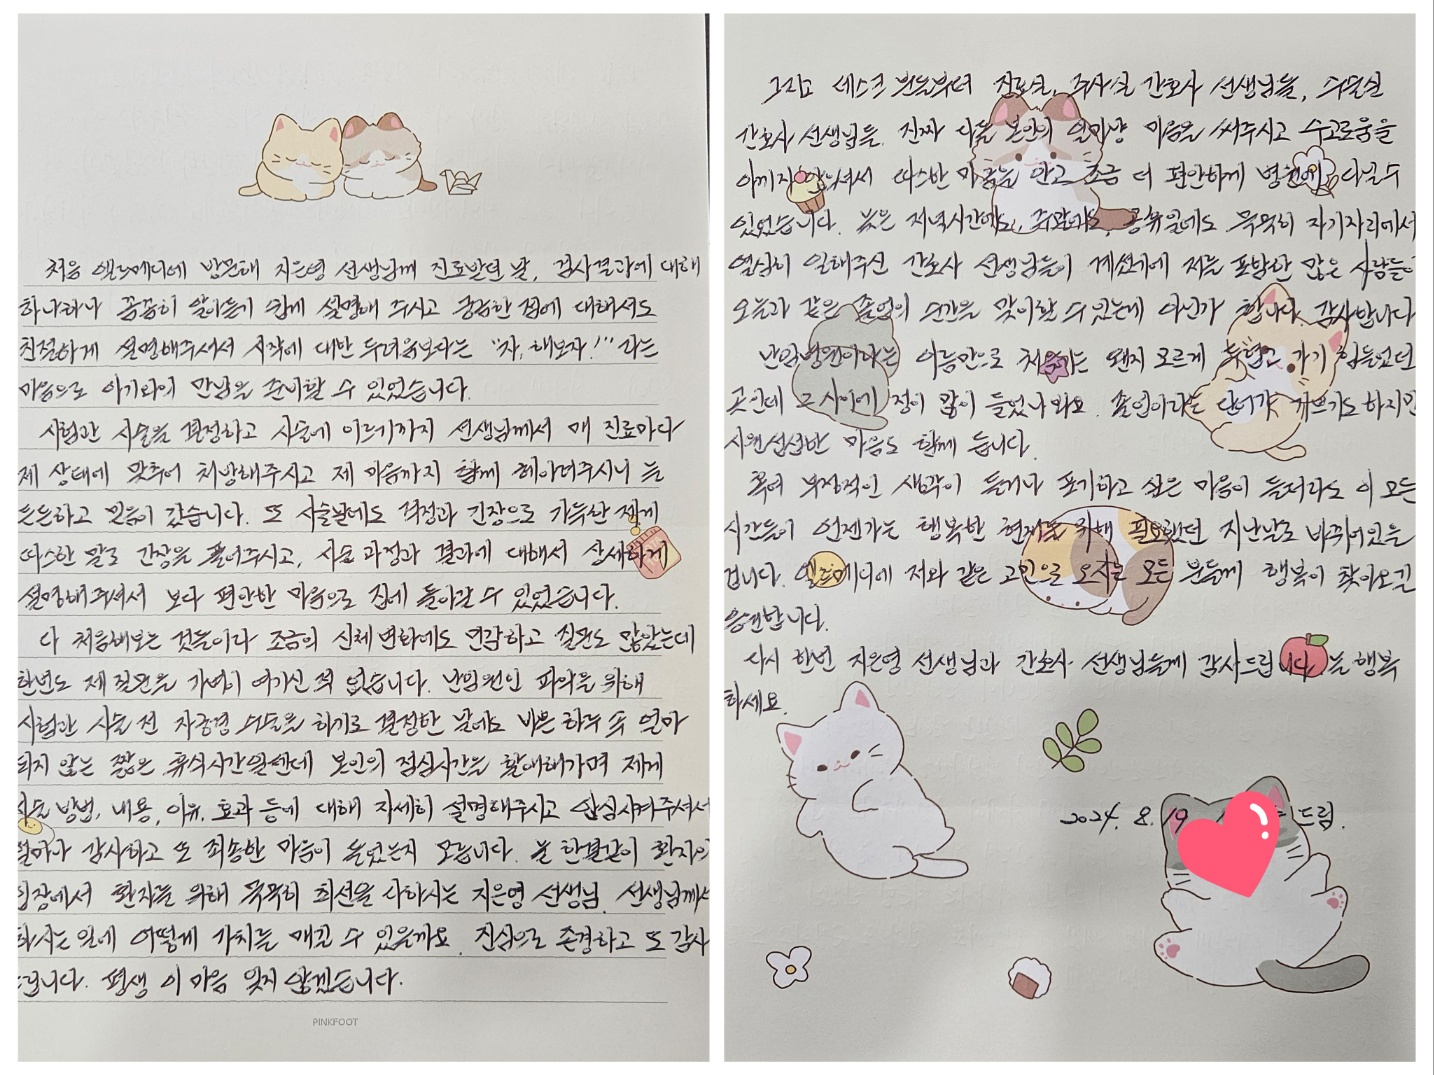 처음 엘르메디에 방문해 지은영 선생님께 진료받던 날, 검사결과에 대해
하나하나 꼼꼼히 알아듣기 쉽게 설명해 주시고 궁금한 점에 대해서도
친절하게 설명해주셔서 시작에 대한 두려움보다는 "자, 해보자!" 라는
마음으로 아기와의 만남을 준비할 수 있었습니다.
시험관 시술을 결정하고 시술에 이르기까지 선생님께서 매 진료마다
제 상태에 맞추어 처방해주시고 제 마음까지 함께 헤아려주시니 늘
든든하고 믿음이 갔습니다. 또 시술날에도 걱정과 긴장으로 가득한 제게
따스한 말로 긴장을 풀어주시고, 시술 과정과 결과에 대해서 상세하게
설명해주셔서 보다 편안한 마음으로 집에 돌아갈 수 있었습니다.
다 처음해보는 것들이라 조금의 신체변화에도 민감하고 질문도 많았는데
한번도 제 질문을 가벼이 여기신 적 없습니다. 난임원인 파악을 위해
시험관 시술 전 자궁경 수술을 하기로 결정한 날에도 바쁜 하루 속 얼마
되지 않는 짧은 휴식시간일텐데 본인의 점심시간을 할애해가며 제게
수술 방법, 내용, 이유, 효과 등에 대해 자세히 설명해주시고 안심시켜주셔서
얼마나 감사하고 또 죄송한 마음이 들었는지 모릅니다. 늘 한결같이 환자의
입장에서 환자를 위해 묵묵히 최선을 다하시는 지은영 선생님. 선생님께서
하시는 일에 어떻게 가치를 매길 수 있을까요. 진심으로 존경하고 또 감사
드립니다. 평생 이 마음 잊지 않겠습니다.
PINKFOOT
그리고 데스크 분들부터 진료실, 주사실 간호사 선생님들, 수술실
간호사 선생님들. 진짜 다들 본인의 일마냥 마음을 써주시고 수고로움을
아끼지 않으셔서 따스한 마음을 안고 조금 더 편안하게 병원에 다닐 수
있었습니다. 늦은 저녁시간에도, 주말에도, 공휴일에도 묵묵히 자기자리에서
열심히 일해주신 간호사 선생님들이 계셨기에 저를 포함한 많은 사람들이
오늘과 같은 졸업의 순간을 맞이할 수 있는게 아닌가 합니다. 감사합니다
난임병원이라는 이름만으로 처음에는 왠지 모르게 두렵고 가기 힘들었던
곳인데 그 사이에 정이 많이 들었나봐요. 졸업이라는 단어가 기쁘기도 하지만
시원섭섭한 마음도 함께 듭니다.
혹여 부정적인 생각이 들거나 포기하고 싶은 마음이 들더라도 이 모든
시간들이 언젠가는 행복한 현재를 위해 필요했던 지난날로 바뀌어있을
겁니다. 엘르메디에 저와 같은 고민으로 오시는 모든 분들께 행복이 찾아오길
응원합니다.
다시 한번 지은영 선생님과 간호사 선생님들께 감사드립니다. 늘 행복
하세요.
2024. 8. 19 드림.